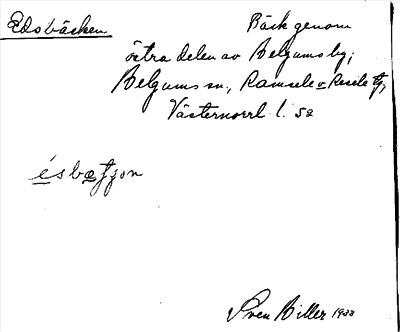 Edsbäcken Bäck genom
östra delen av Helgums by;
Helgums sn, Ramsele o Resele tg,
Västernorrl. l. 52
ésbæʃʃon
Sven Hiller 1933